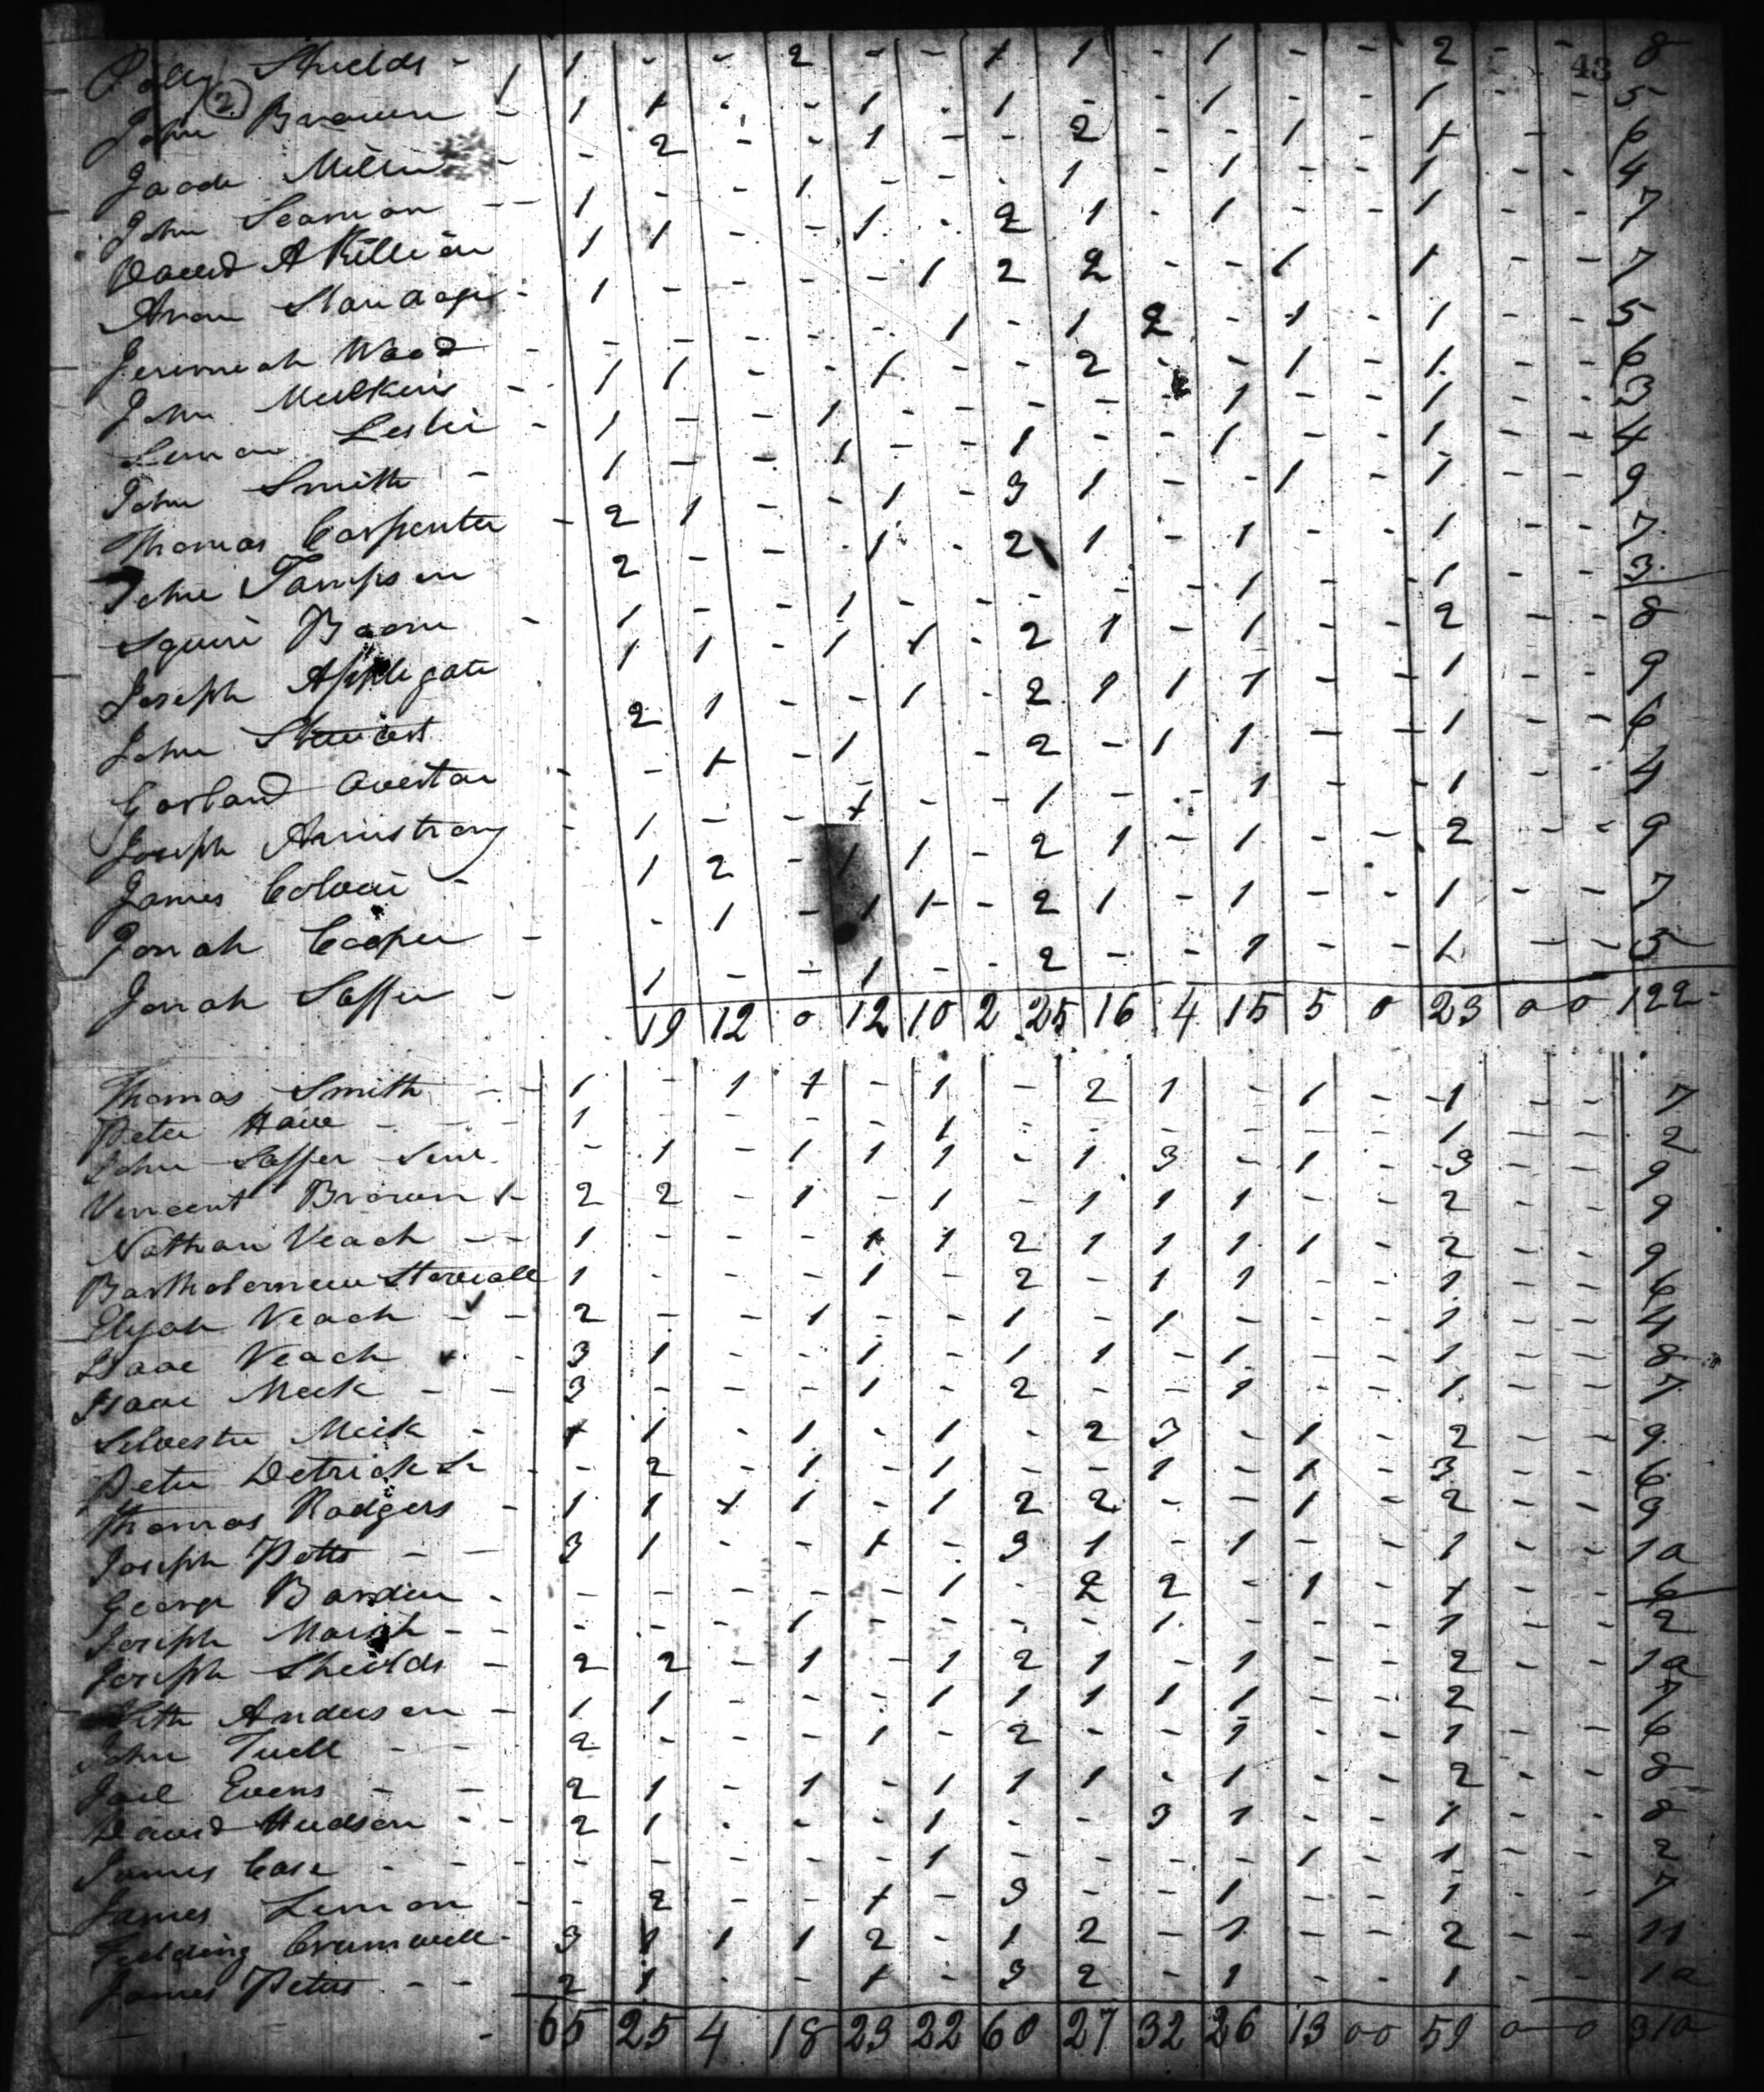 Polly Shields - 1 - - 2 - - 1 1 - 1 - - 2 - - 8
43
2
John Brown - 1 1 - - 1 - 1 - - 1 - - 1 - - 5
Miller - - 2 - - 1 - - 2 - - 1 - 1 - 6
John Seaman - - 1 - - 1 - - - 1 - 1 - - 1 - - 4
David A Killion 1 1 - - 1 - 2 1 - 1 - - 1 7
- 1 - - - - 1 2 2 - - 1 1 - - 7
Jeremiah Wood - - - - - - 1 - 1 2 - 1 - 1 - - 5
John Mulkins - 1 1 - - 1 - - 2 - - 1 - 1 - - 6
Leslie - 1 - - 1 - - - - - 1 - - 1 - - 3
John Smith - 1 - - 1 - - 1 - - 1 - - 1 - - 4
Thomas Carpenter - 2 1 - - 1 - 3 1 - - 1 - 1 - - 9
John Tampson 2 - - 1 - 2 1 - 1 - - 1 - - 7
Squire Boone - 1 - - 1 - - - - - 1 - - 1 - - 3
Joseph Applegate 1 1 - 1 1 - 2 1 - 1 - - 2 - - 8
John 2 1 - - 1 - 2 1 1 1 - - 1 - - 9
Garland Overton - - 1 - 1 - 2 - 1 1 - - 1 - - 6
Joseph Armstrong - 1 - - 1 - - 1 - - 1 - - 1 - - 4
James Colvin - 1 2 - 1 1 - 2 1 - 1 - - 2 - - 9
Jonah Cooper - - 1 - 1 1 - 2 1 - 1 - - 1 - - 7
Jonah Saffer - 1 - - 1 - - 2 - - 1 - - 1 - - 5
19 12 0 12 10 2 25 16 4 15 5 0 23 0 0 122
Thomas Smith - - 1 - 1 1 - 1 - 2 1 - 1 - 1 - - 7
Peter - - 1 - - - - 1 - - - - - - 1 - - 2
John Saffer Senr - 1 - 1 1 1 - 1 3 - 1 - 3 - - 9
Vincent Brown 2 2 - 1 - 1 - 1 1 1 - - 2 - - 9
Nathan Veach - - 1 - - - 1 1 2 1 1 1 1 - 2 - - 9
Bartholemew 1 - - - 1 - 2 - 1 1 - - 1 - - 6
Elijah Veach - - 2 - - 1 - - 1 - 1 - - - 1 - - 4
Isaac Veach - 3 1 - - 1 - 1 1 - 1 - - 1 - - 8
Isaac Meek - - 3 - - - 1 - 2 - - 1 - - 1 - - 7
Silvester Meek - 1 1 - 1 - 1 - 2 3 - 1 - 2 - - 9
Peter Detrick Sr - - 2 - 1 - 1 - - 1 - 1 - 3 - - 6
Thomas Rodgers - 1 1 1 1 - 1 2 2 - - 1 - 2 - - 9
Joseph Potts - - 3 1 - - 1 - 3 1 - 1 - - 1 - - 10
George Barden - - - - - - 1 - 2 2 - 1 - 1 - - 6
Joseph Marsh - - - - - 1 - - - - 1 - - - 1 - - 2
Joseph Shields - 2 2 - 1 - 1 2 1 - 1 - - 2 - - 10
Anderson - 1 1 - - - 1 1 1 1 1 - - 2 - - 7
John Tuell - - 2 - - - 1 - 2 - - 1 - - 1 - - 6
Joel Evens - - 2 1 - 1 - 1 1 1 - 1 - - 2 - - 8
David Hudson - - 2 1 - - - 1 - - 3 1 - - 1 - - 8
James Case - - - - - - - 1 - - - - 1 - 1 - - 2
James Lemon - - 2 - - 1 - 3 - - 1 - - 1 - - 7
Fielding Cramwell - 3 1 1 1 2 - 1 2 - 1 - - 2 - - 11
James Peters - - 2 1 - - 1 - 3 2 - 1 - - 1 - - 10
- 65 25 4 18 23 22 60 27 32 26 13 00 59 0 0 310